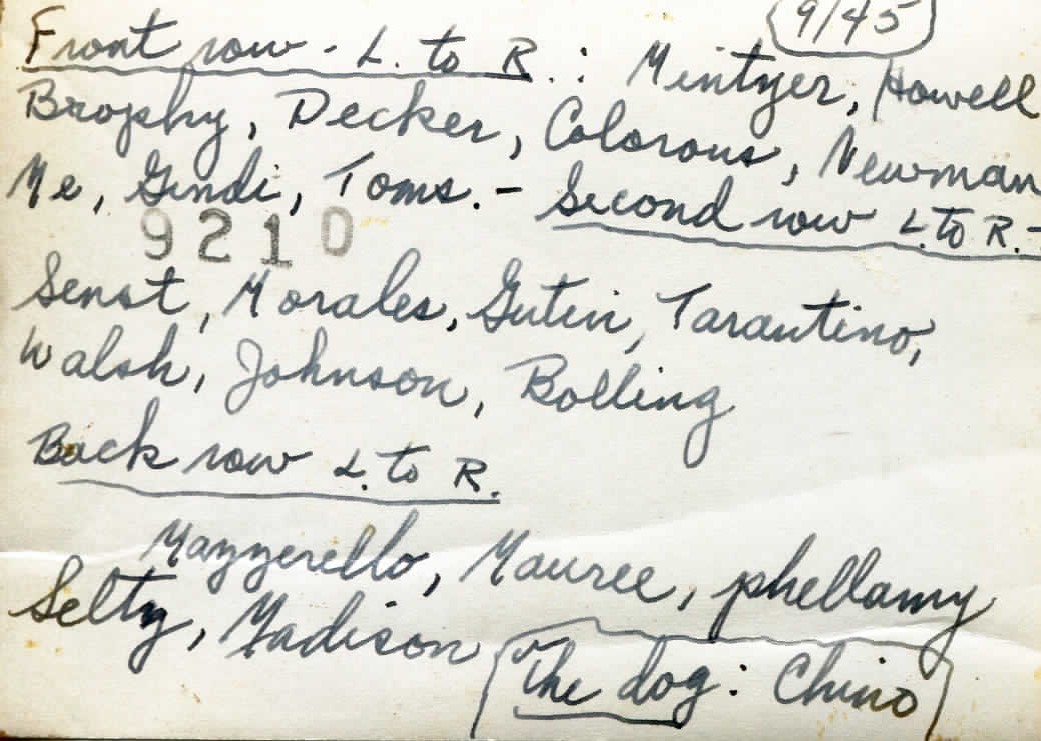 9/45
Front row - L. to R. : Mintyer, Howell
Brophy, Decker, Colorous, Newman
Me, Gindi, Toms. - Second row L. to R. -
9210
Senst, Morales, Gutin, Tarantino,
Walsh, Johnson, Bolling
Back row L. to R.
Mazzerello, Mauree, phellamy
Selty, Madison
The dog: Chino